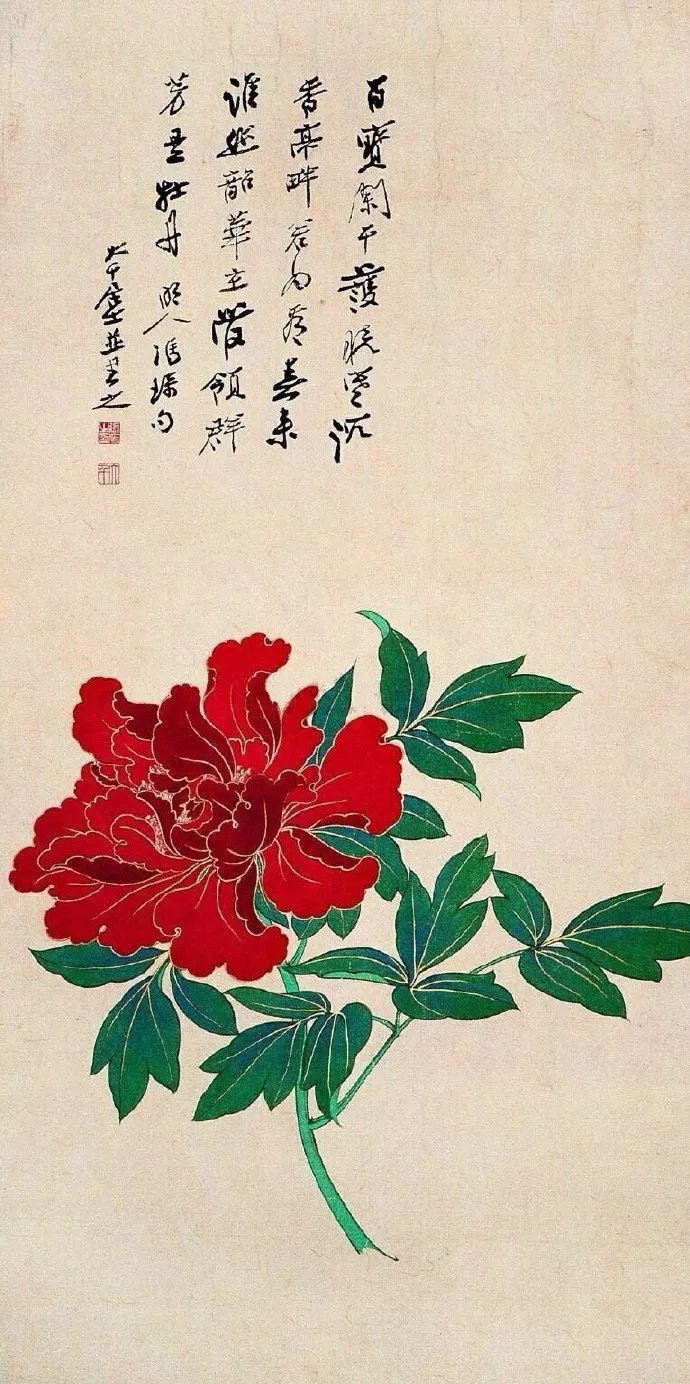 百寶闌干護曉寒沉
香亭畔若為看春來
誰作韶華主總領群
芳是牡丹 明人馮琢句
大千居士並書之